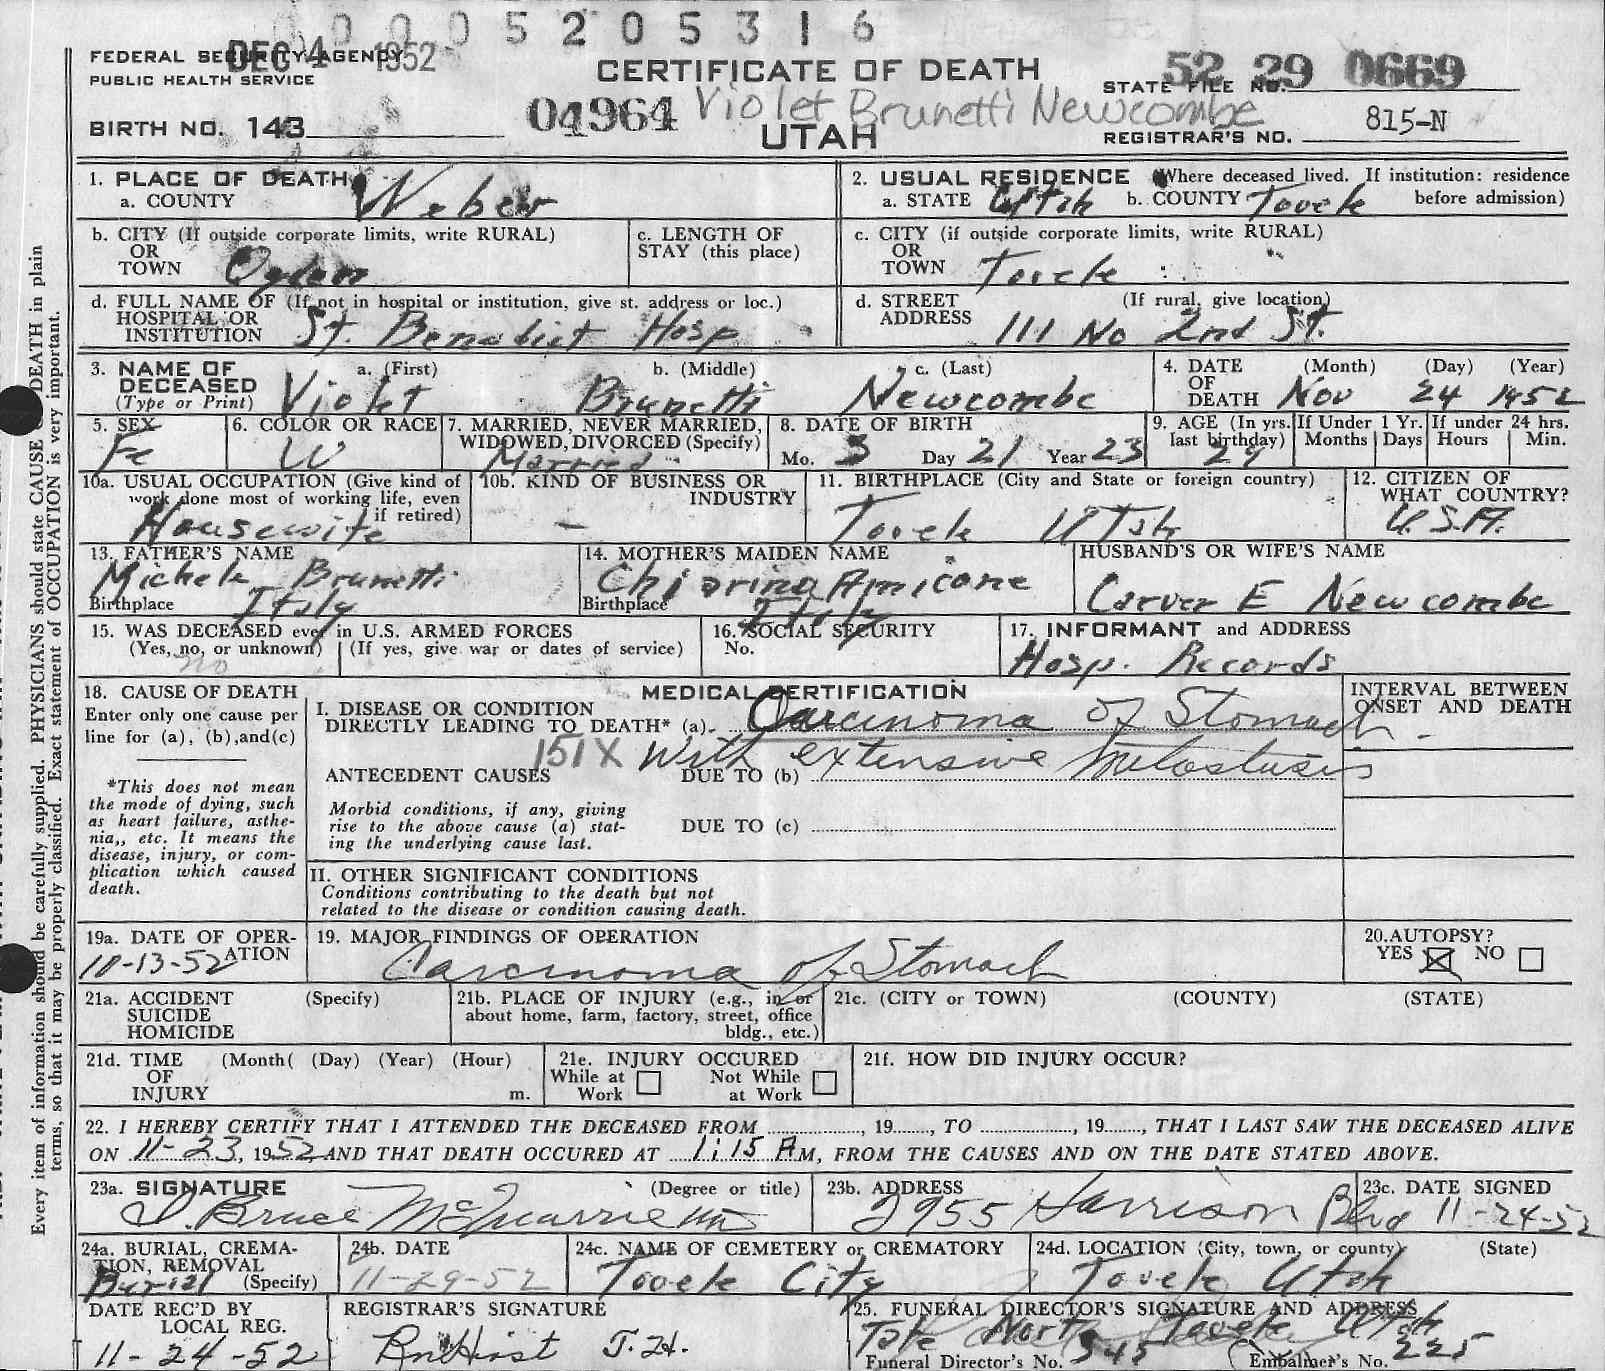 0 0 0 5 2 0 5 3 1 6
FEDERAL SECURITY AGENCY
DEC 4 1952
PUBLIC HEALTH SERVICE
CERTIFICATE OF DEATH
STATE FILE NO. 52 29 0669
BIRTH NO. 143
04964 Violet Brunetti Newcombe
UTAH
REGISTRAR'S NO. 815-N
1. PLACE OF DEATH
a. COUNTY Weber
2. USUAL RESIDENCE (Where deceased lived. If institution: residence before admission)
a. STATE Utah b. COUNTY Tooele
b. CITY (If outside corporate limits, write RURAL) OR TOWN Ogden
c. LENGTH OF STAY (this place)
c. CITY (if outside corporate limits, write RURAL) OR TOWN Tooele
d. FULL NAME OF (If not in hospital or institution, give st. address or loc.) HOSPITAL OR INSTITUTION St. Benedict Hosp
d. STREET ADDRESS (If rural, give location) 111 No 2nd St.
3. NAME OF DECEASED (Type or Print)
a. (First) Violet
b. (Middle) Brunetti
c. (Last) Newcombe
4. DATE OF DEATH (Month) (Day) (Year) Nov 24 1952
5. SEX Fe
6. COLOR OR RACE W
7. MARRIED, NEVER MARRIED, WIDOWED, DIVORCED (Specify) Married
8. DATE OF BIRTH Mo. 3 Day 21 Year 23
9. AGE (In yrs. last birthday) 29
If Under 1 Yr. Months Days
If under 24 hrs. Hours Min.
10a. USUAL OCCUPATION (Give kind of work done most of working life, even if retired) Housewife
10b. KIND OF BUSINESS OR INDUSTRY -
11. BIRTHPLACE (City and State or foreign country) Tooele Utah
12. CITIZEN OF WHAT COUNTRY? U.S.A.
13. FATHER'S NAME Michele Brunetti
Birthplace Italy
14. MOTHER'S MAIDEN NAME Chiarina Amicone
Birthplace Italy
HUSBAND'S OR WIFE'S NAME Carver E Newcombe
15. WAS DECEASED ever in U.S. ARMED FORCES
(Yes, no, or unknown) (If yes, give war or dates of service)
no
16. SOCIAL SECURITY No.
17. INFORMANT and ADDRESS
Hosp. Records
18. CAUSE OF DEATH
Enter only one cause per line for (a), (b),and(c)
*This does not mean the mode of dying, such as heart failure, asthenia,, etc. It means the disease, injury, or complication which caused death.
MEDICAL CERTIFICATION
INTERVAL BETWEEN ONSET AND DEATH
I. DISEASE OR CONDITION
DIRECTLY LEADING TO DEATH* (a) Carcinoma of Stomach
151X With extensive metastasis
ANTECEDENT CAUSES DUE TO (b)
Morbid conditions, if any, giving rise to the above cause (a) stating the underlying cause last.
DUE TO (c)
II. OTHER SIGNIFICANT CONDITIONS
Conditions contributing to the death but not related to the disease or condition causing death.
19a. DATE OF OPERATION 10-13-52
19. MAJOR FINDINGS OF OPERATION
Carcinoma of Stomach
20. AUTOPSY?
YES NO
21a. ACCIDENT SUICIDE HOMICIDE (Specify)
21b. PLACE OF INJURY (e.g., in or about home, farm, factory, street, office bldg., etc.)
21c. (CITY or TOWN) (COUNTY) (STATE)
21d. TIME OF INJURY (Month( (Day) (Year) (Hour) m.
21e. INJURY OCCURED
While at Work Not While at Work
21f. HOW DID INJURY OCCUR?
22. I HEREBY CERTIFY THAT I ATTENDED THE DECEASED FROM , 19 , TO , 19 , THAT I LAST SAW THE DECEASED ALIVE
ON 11-23, 1952, AND THAT DEATH OCCURED AT 1:15 A M, FROM THE CAUSES AND ON THE DATE STATED ABOVE.
23a. SIGNATURE (Degree or title)
Bruce McQuarrie MD
23b. ADDRESS
2955 Harrison Blvd
23c. DATE SIGNED
11-24-52
24a. BURIAL, CREMATION, REMOVAL (Specify) Burial
24b. DATE
11-29-52
24c. NAME OF CEMETERY or CREMATORY
Tooele City
24d. LOCATION (City, town, or county) (State)
Tooele Utah
DATE REC'D BY LOCAL REG.
11-24-52
REGISTRAR'S SIGNATURE
25. FUNERAL DIRECTOR'S SIGNATURE AND ADDRESS
Tate Mort Tooele Utah
Funeral Director's No. 345 Embalmer's No. 225
Every item of information should be carefully supplied. PHYSICIANS should state CAUSE OF DEATH in plain
terms, so that it may be properly classified. Exact statement of OCCUPATION is very important.